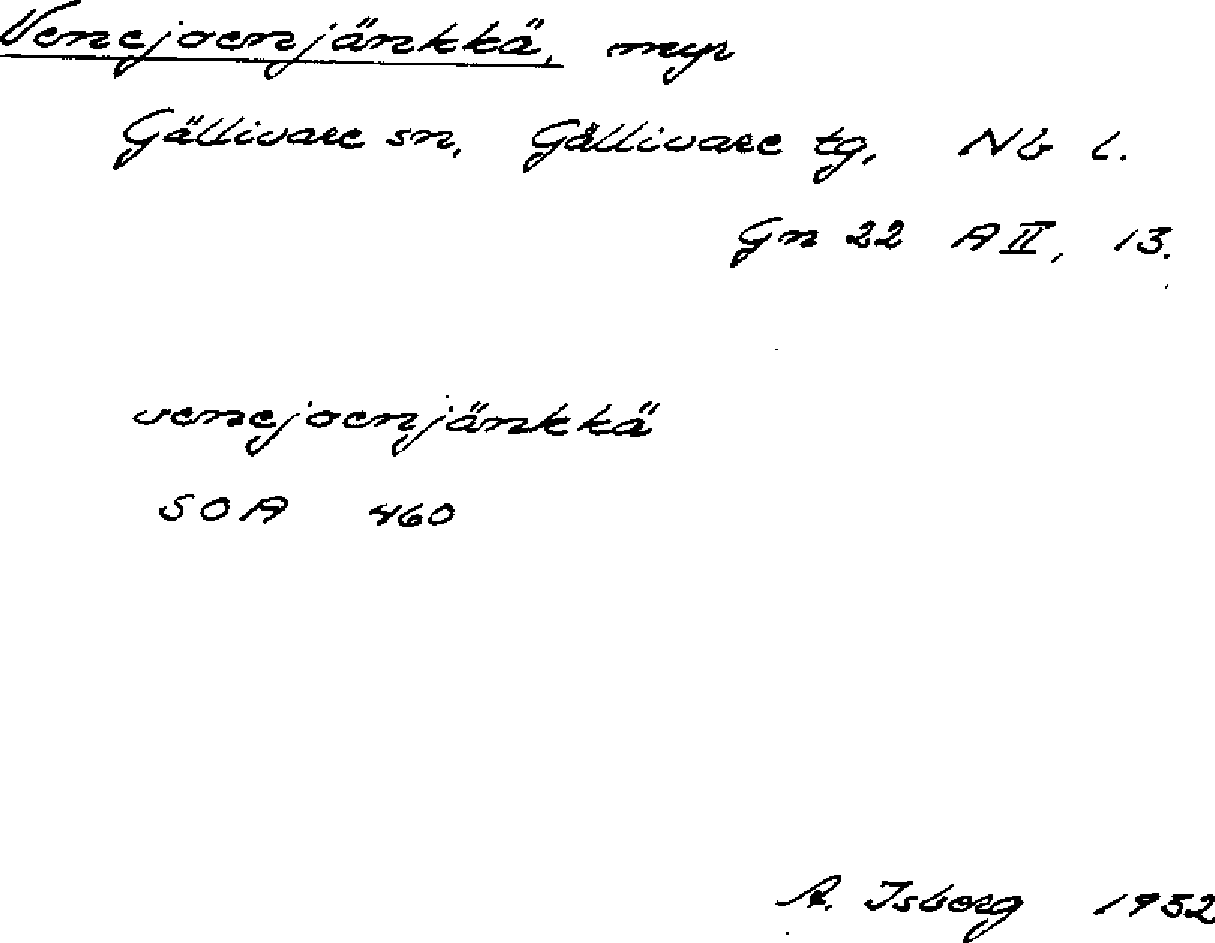 Venejoenjänkkä, myr
Gällivare sn, Gällivare tg, Nb l.
Gn 22 A II, 13.
venejoenjänkkä
SOA 460
A. Isberg 1932